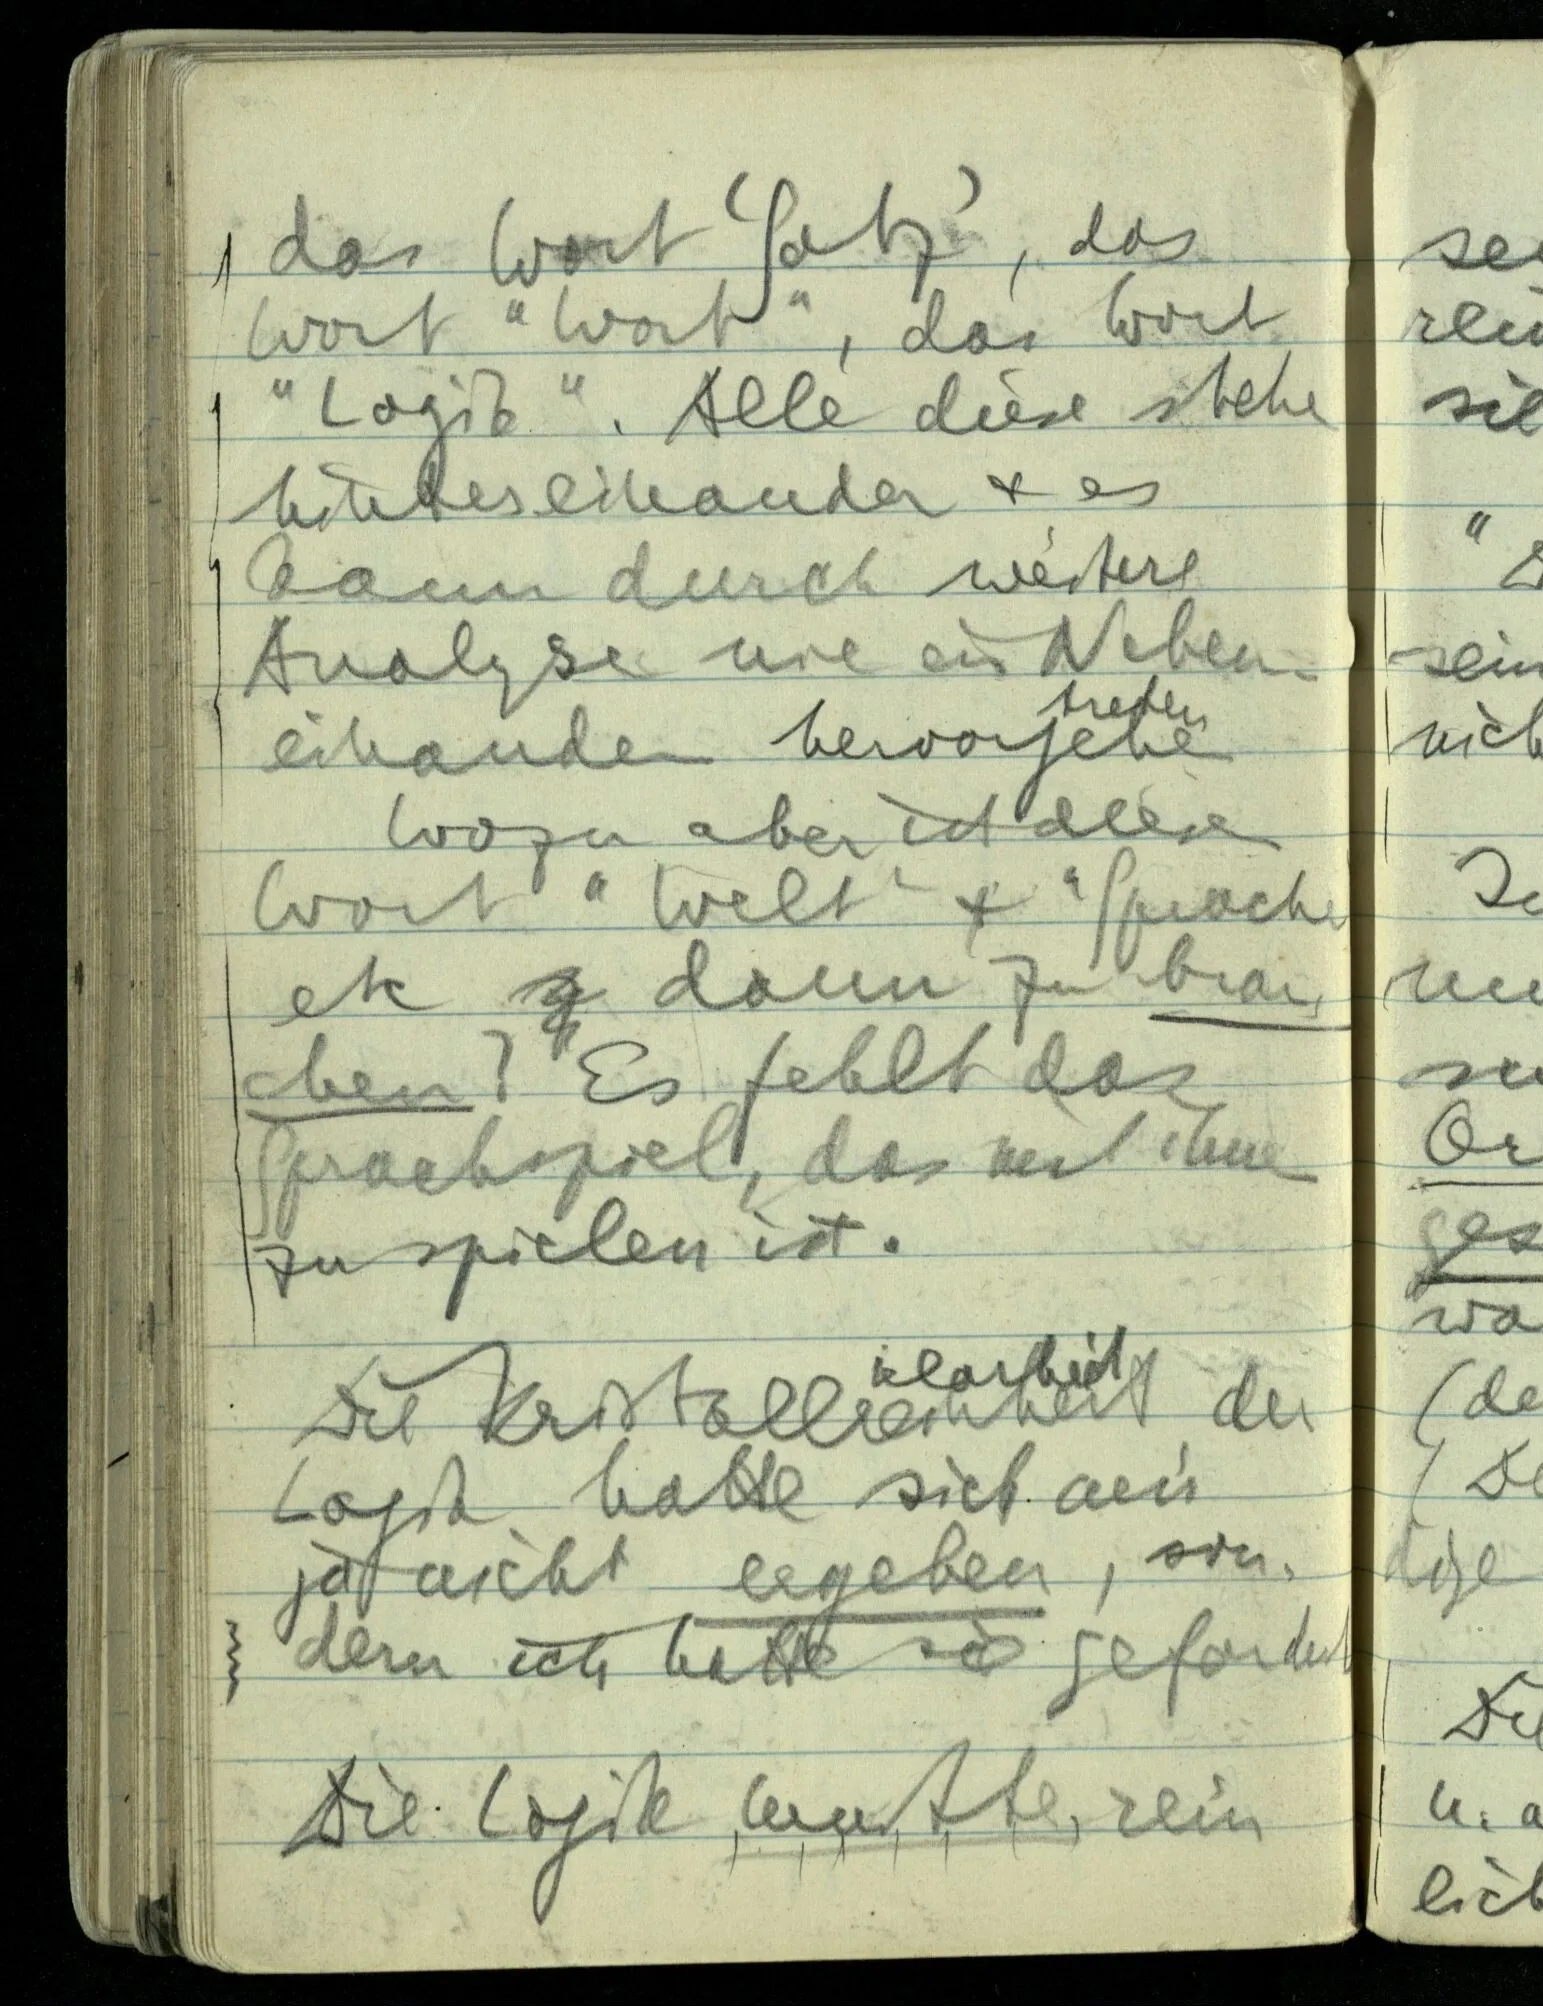 das Wort ‘Satz’, das
Wort “Wort”, das Wort
“Logik”. Alle diese stehe
hintereinander & es
kann durch weitere
Analyse nie ein Neben-
einander hervorgehe
treten
Wozu aber ist diese
Wort “Welt” & “Sprache
etc dann zu brau
chen? Es fehlt das
Sprachspiel, das mit ihm
zu spielen ist.
klarheit
Die Kristallreinheit der
Logik hatte sich mir
ja nicht ergeben, son-
dern ich hatte sie gefordert
Die Logik mußte rein
se
rein
sie
“D
sein
nich
Ic
Or
ges
wa
(de
(De
dige
Die
u. a
lich